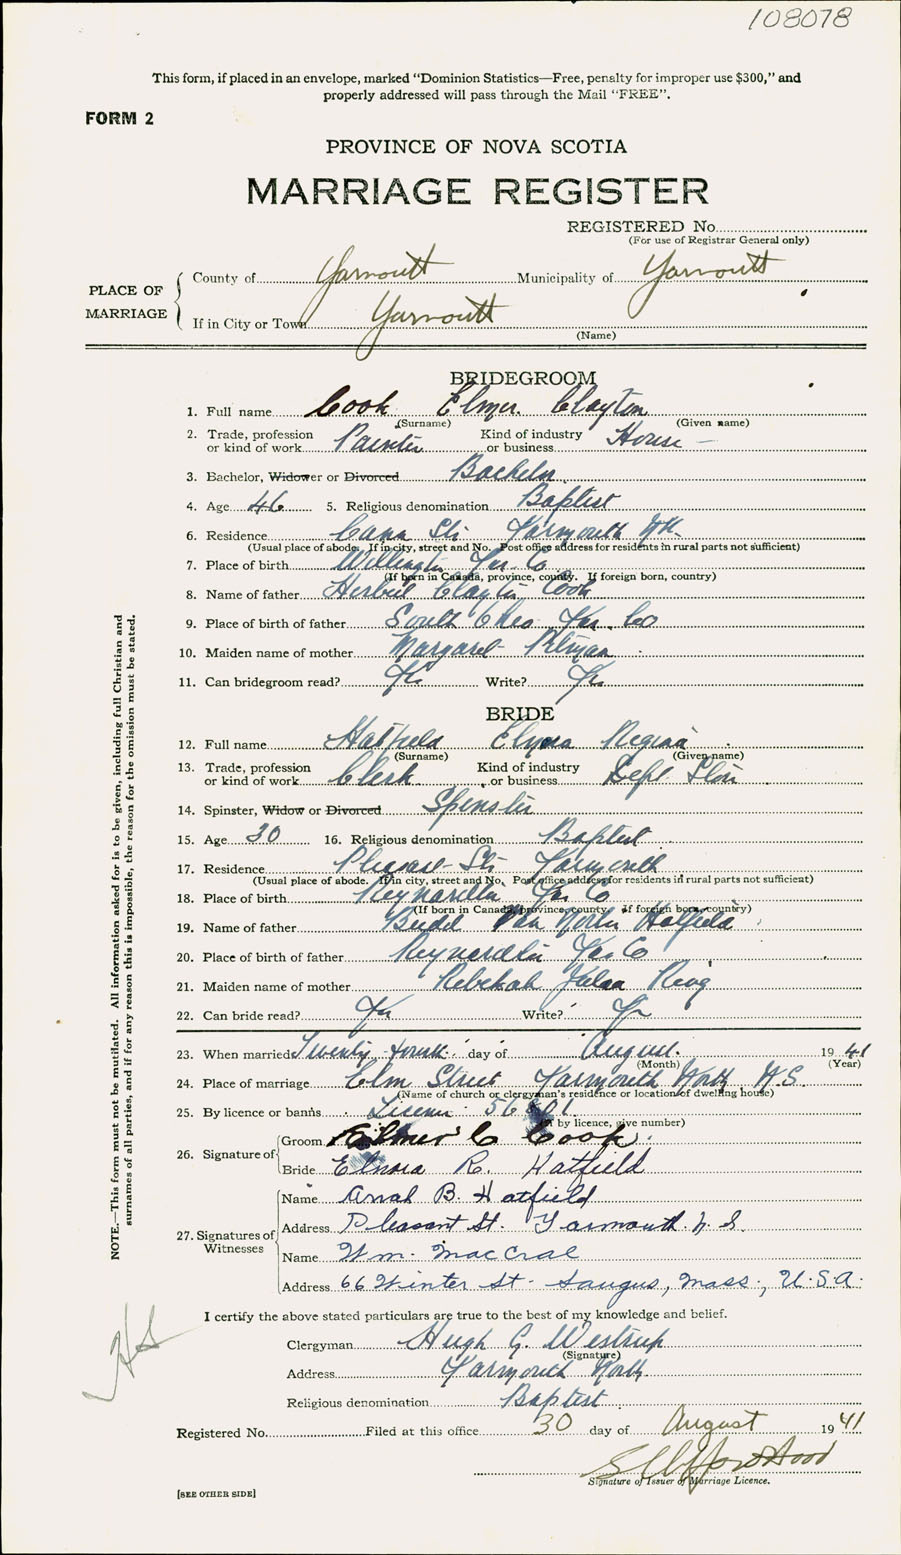 108078
This form, if placed in an envelope, marked "Dominion Statistics—Free, penalty for improper use $300," and
properly addressed will pass through the Mail "FREE".
FORM 2
PROVINCE OF NOVA SCOTIA
MARRIAGE REGISTER
REGISTERED No.
(For use of Registrar General only)
PLACE OF MARRIAGE
County of Yarmouth Municipality of Yarmouth
If in City or Town Yarmouth
(Name)
BRIDEGROOM
1. Full name Cook Elmer Clayton
(Surname) (Given name)
2. Trade, profession or kind of work Painter Kind of industry or business House
3. Bachelor, Widower or Divorced Bachelor
4. Age 46 5. Religious denomination Baptist
6. Residence St. Yarmouth
(Usual place of abode. If in city, street and No. Post office address for residents in rural parts not sufficient)
7. Place of birth Yar. Co
(If born in Canada, province, county. If foreign born, country)
8. Name of father Clayton Cook
9. Place of birth of father South Ohio Yar. Co
10. Maiden name of mother Margaret Pitman
11. Can bridegroom read? Yes Write? Yes
BRIDE
12. Full name Hatfield Elnora Regina
(Surname) (Given name)
13. Trade, profession or kind of work Clerk Kind of industry or business Dept Store
14. Spinster, Widow or Divorced Spinster
15. Age 30 16. Religious denomination Baptist
17. Residence Pleasant St. Yarmouth
(Usual place of abode. If in city, street and No. Post office address for residents in rural parts not sufficient)
18. Place of birth Yar. Co
(If born in Canada, province, county. If foreign born, country)
19. Name of father Van Hatfield
20. Place of birth of father Yar. Co
21. Maiden name of mother Rebekah Ring
22. Can bride read? Yes Write? Yes
23. When married Twenty fourth day of August 1941
(Month) (Year)
24. Place of marriage Elm Street Yarmouth North N.S.
(Name of church or clergyman's residence or location of dwelling house)
25. By licence or banns License
(If by licence, give number)
26. Signature of
Groom Elmer C Cook
Bride Elnora R. Hatfield
27. Signatures of Witnesses
Name B. Hatfield
Address Pleasant St. Yarmouth N. S.
Name Wm. MacCrae
Address 66 Winter St. Saugus, Mass., U.S.A.
I certify the above stated particulars are true to the best of my knowledge and belief.
Clergyman Hugh G. Westrup
(Signature)
Address Yarmouth North
Religious denomination Baptist
Registered No. Filed at this office 30 day of August 1941
Signature of Issuer of Marriage Licence.
[SEE OTHER SIDE]
NOTE.—This form must not be mutilated. All information asked for is to be given, including full Christian and
surnames of all parties, and if for any reason this is impossible, the reason for the omission must be stated.